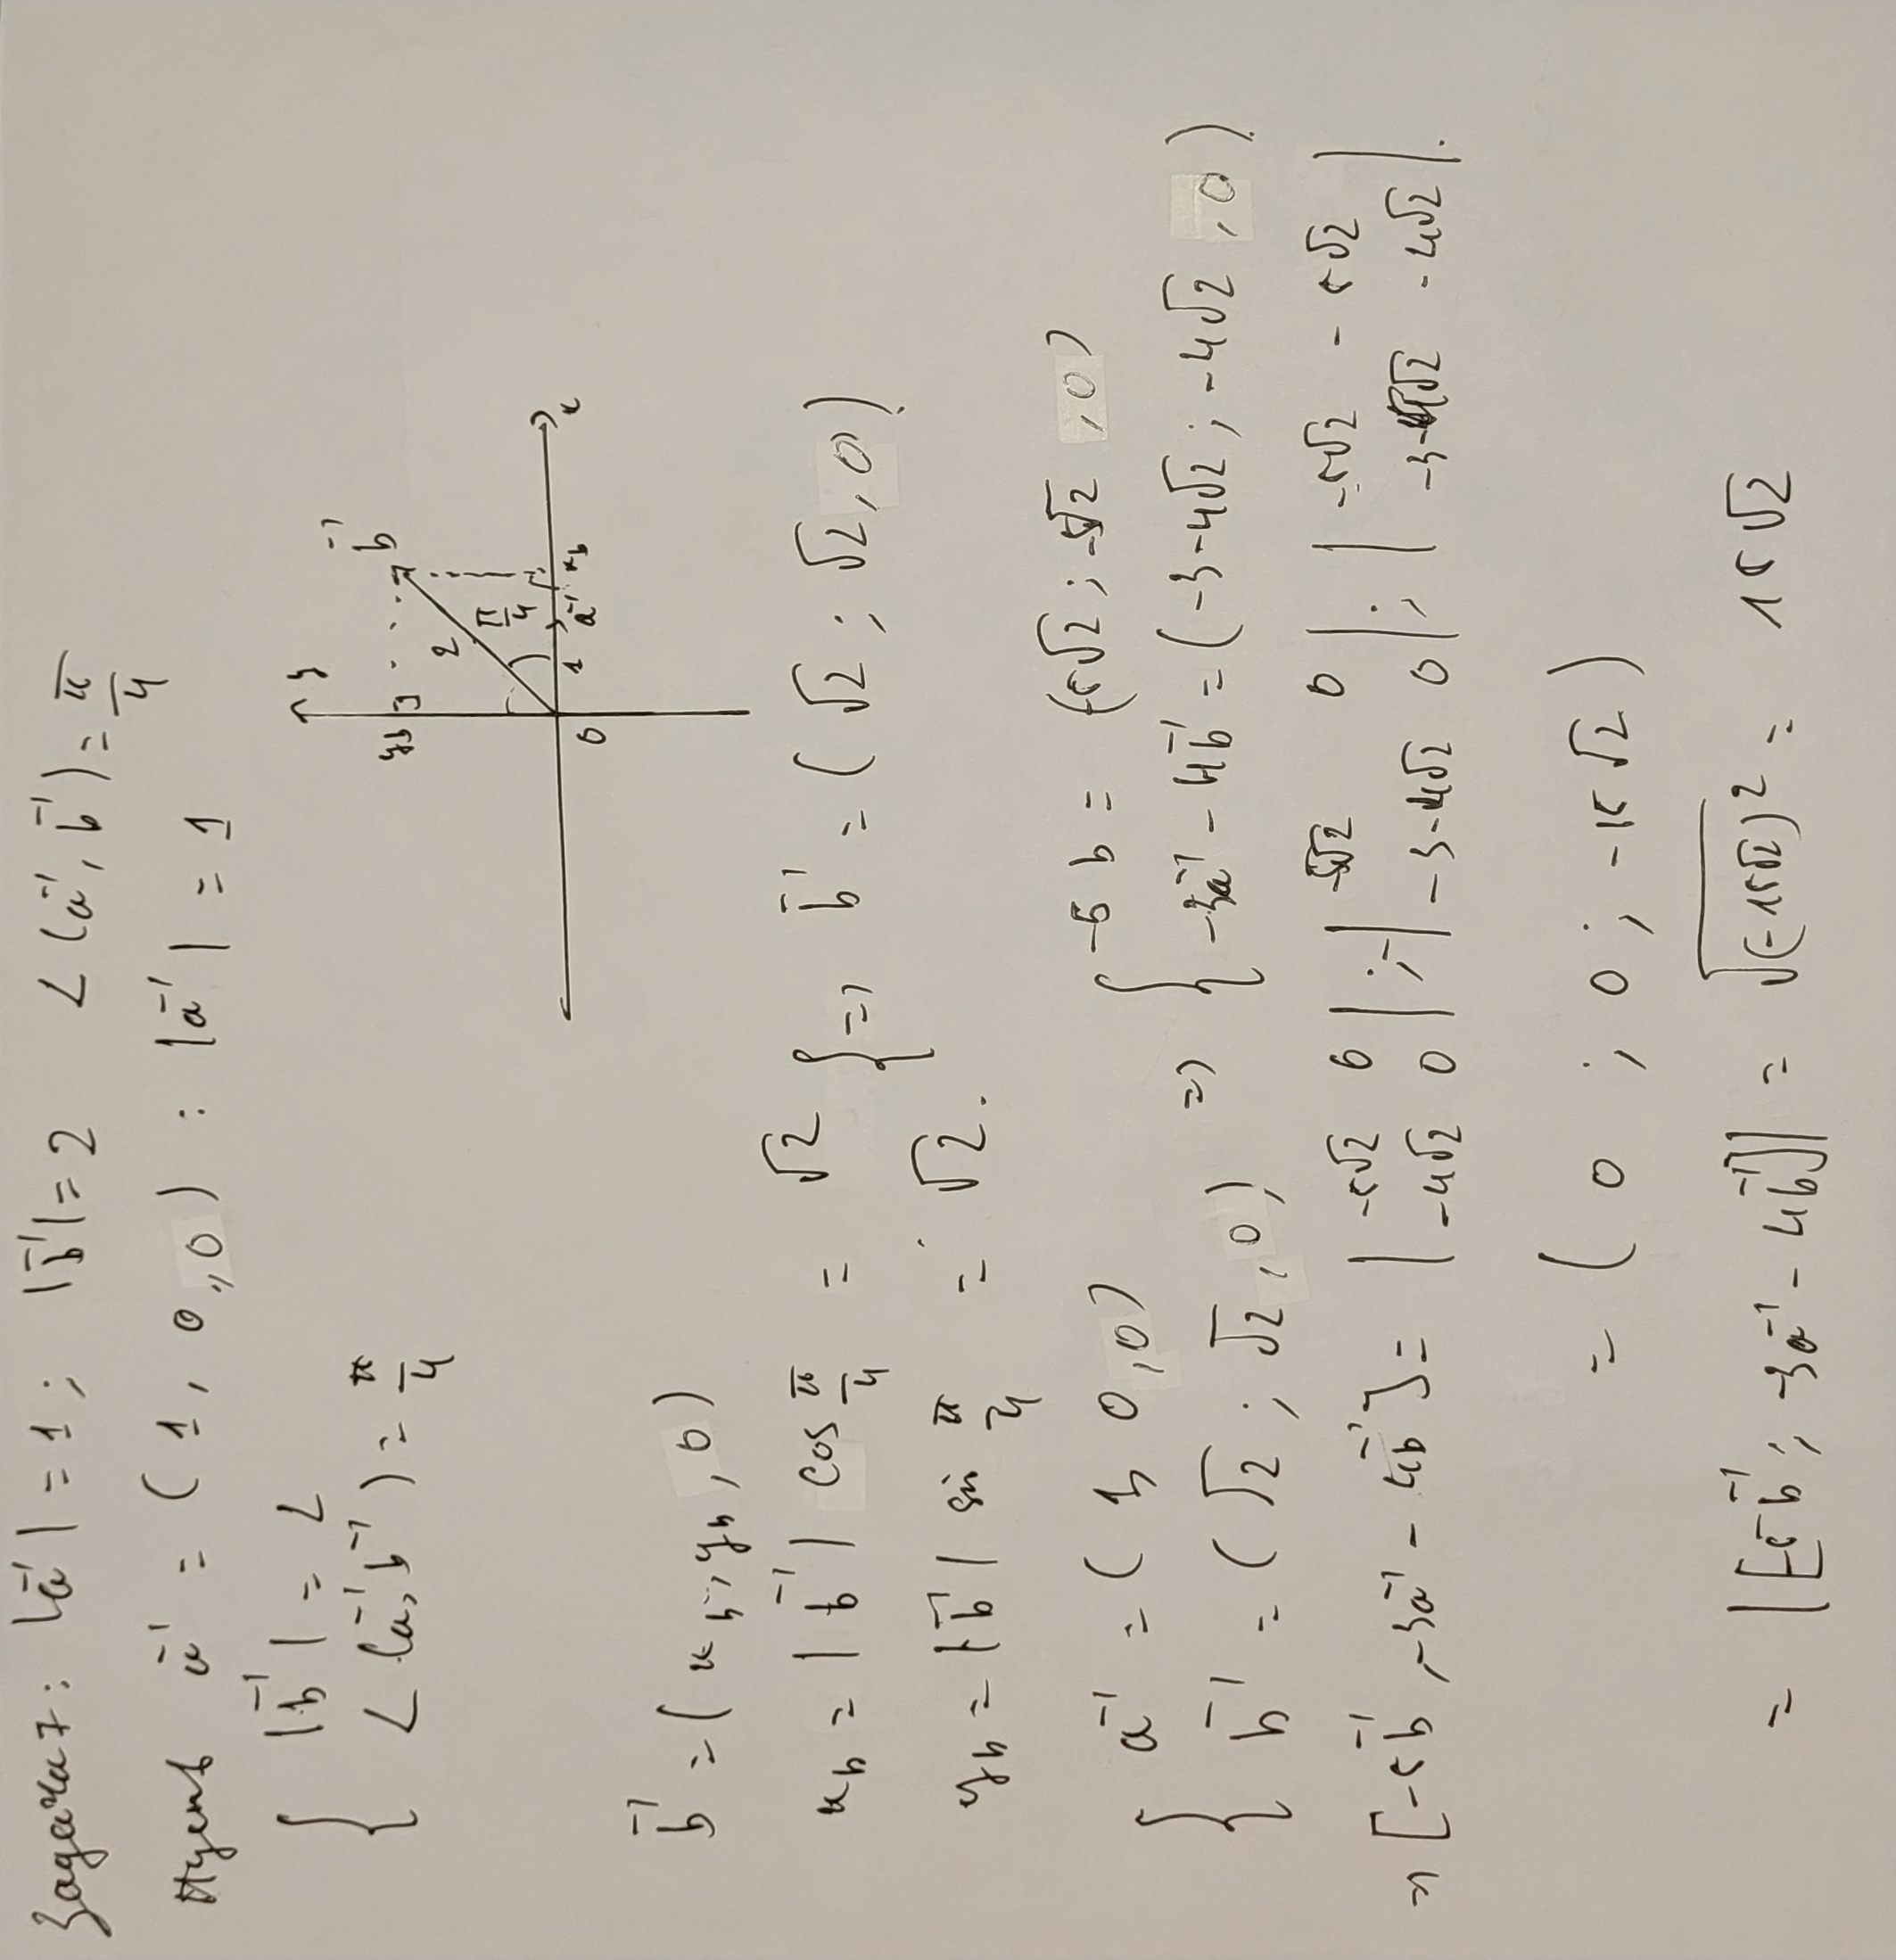 Задача 7: |a⃗| = 1; |b⃗| = 2 ∠(a⃗, b⃗) = π/4
Пусть a⃗ = (1, 0, 0) : |a⃗| = 1
{ |b⃗| = 2
∠(a⃗, b⃗) = π/4
y
b⃗
y_b
2
π/4
0 1 a⃗ x_b x
b⃗ = (x_b, y_b, 0)
x_b = |b⃗| cos π/4 = √2 } => b⃗ = (√2; √2, 0)
y_b = |b⃗| sin π/4 = √2.
{ a⃗ = (1, 0, 0) => { -5 b = (-5√2; -5√2, 0)
b⃗ = (√2; √2, 0) -3a⃗ - 4b⃗ = (-3-4√2; -4√2, 0)
=> [-5b⃗, -3a⃗ - 4b⃗] = | -5√2 0 | ; - | -5√2 0 | ; | -5√2 -5√2 |
| -4√2 0 | | -3-4√2 0 | | -3-4√2 -4√2 |.
= (0; 0; -15√2)
= |[-5b⃗; -3a⃗ - 4b⃗]| = √(-15√2)² = 15√2